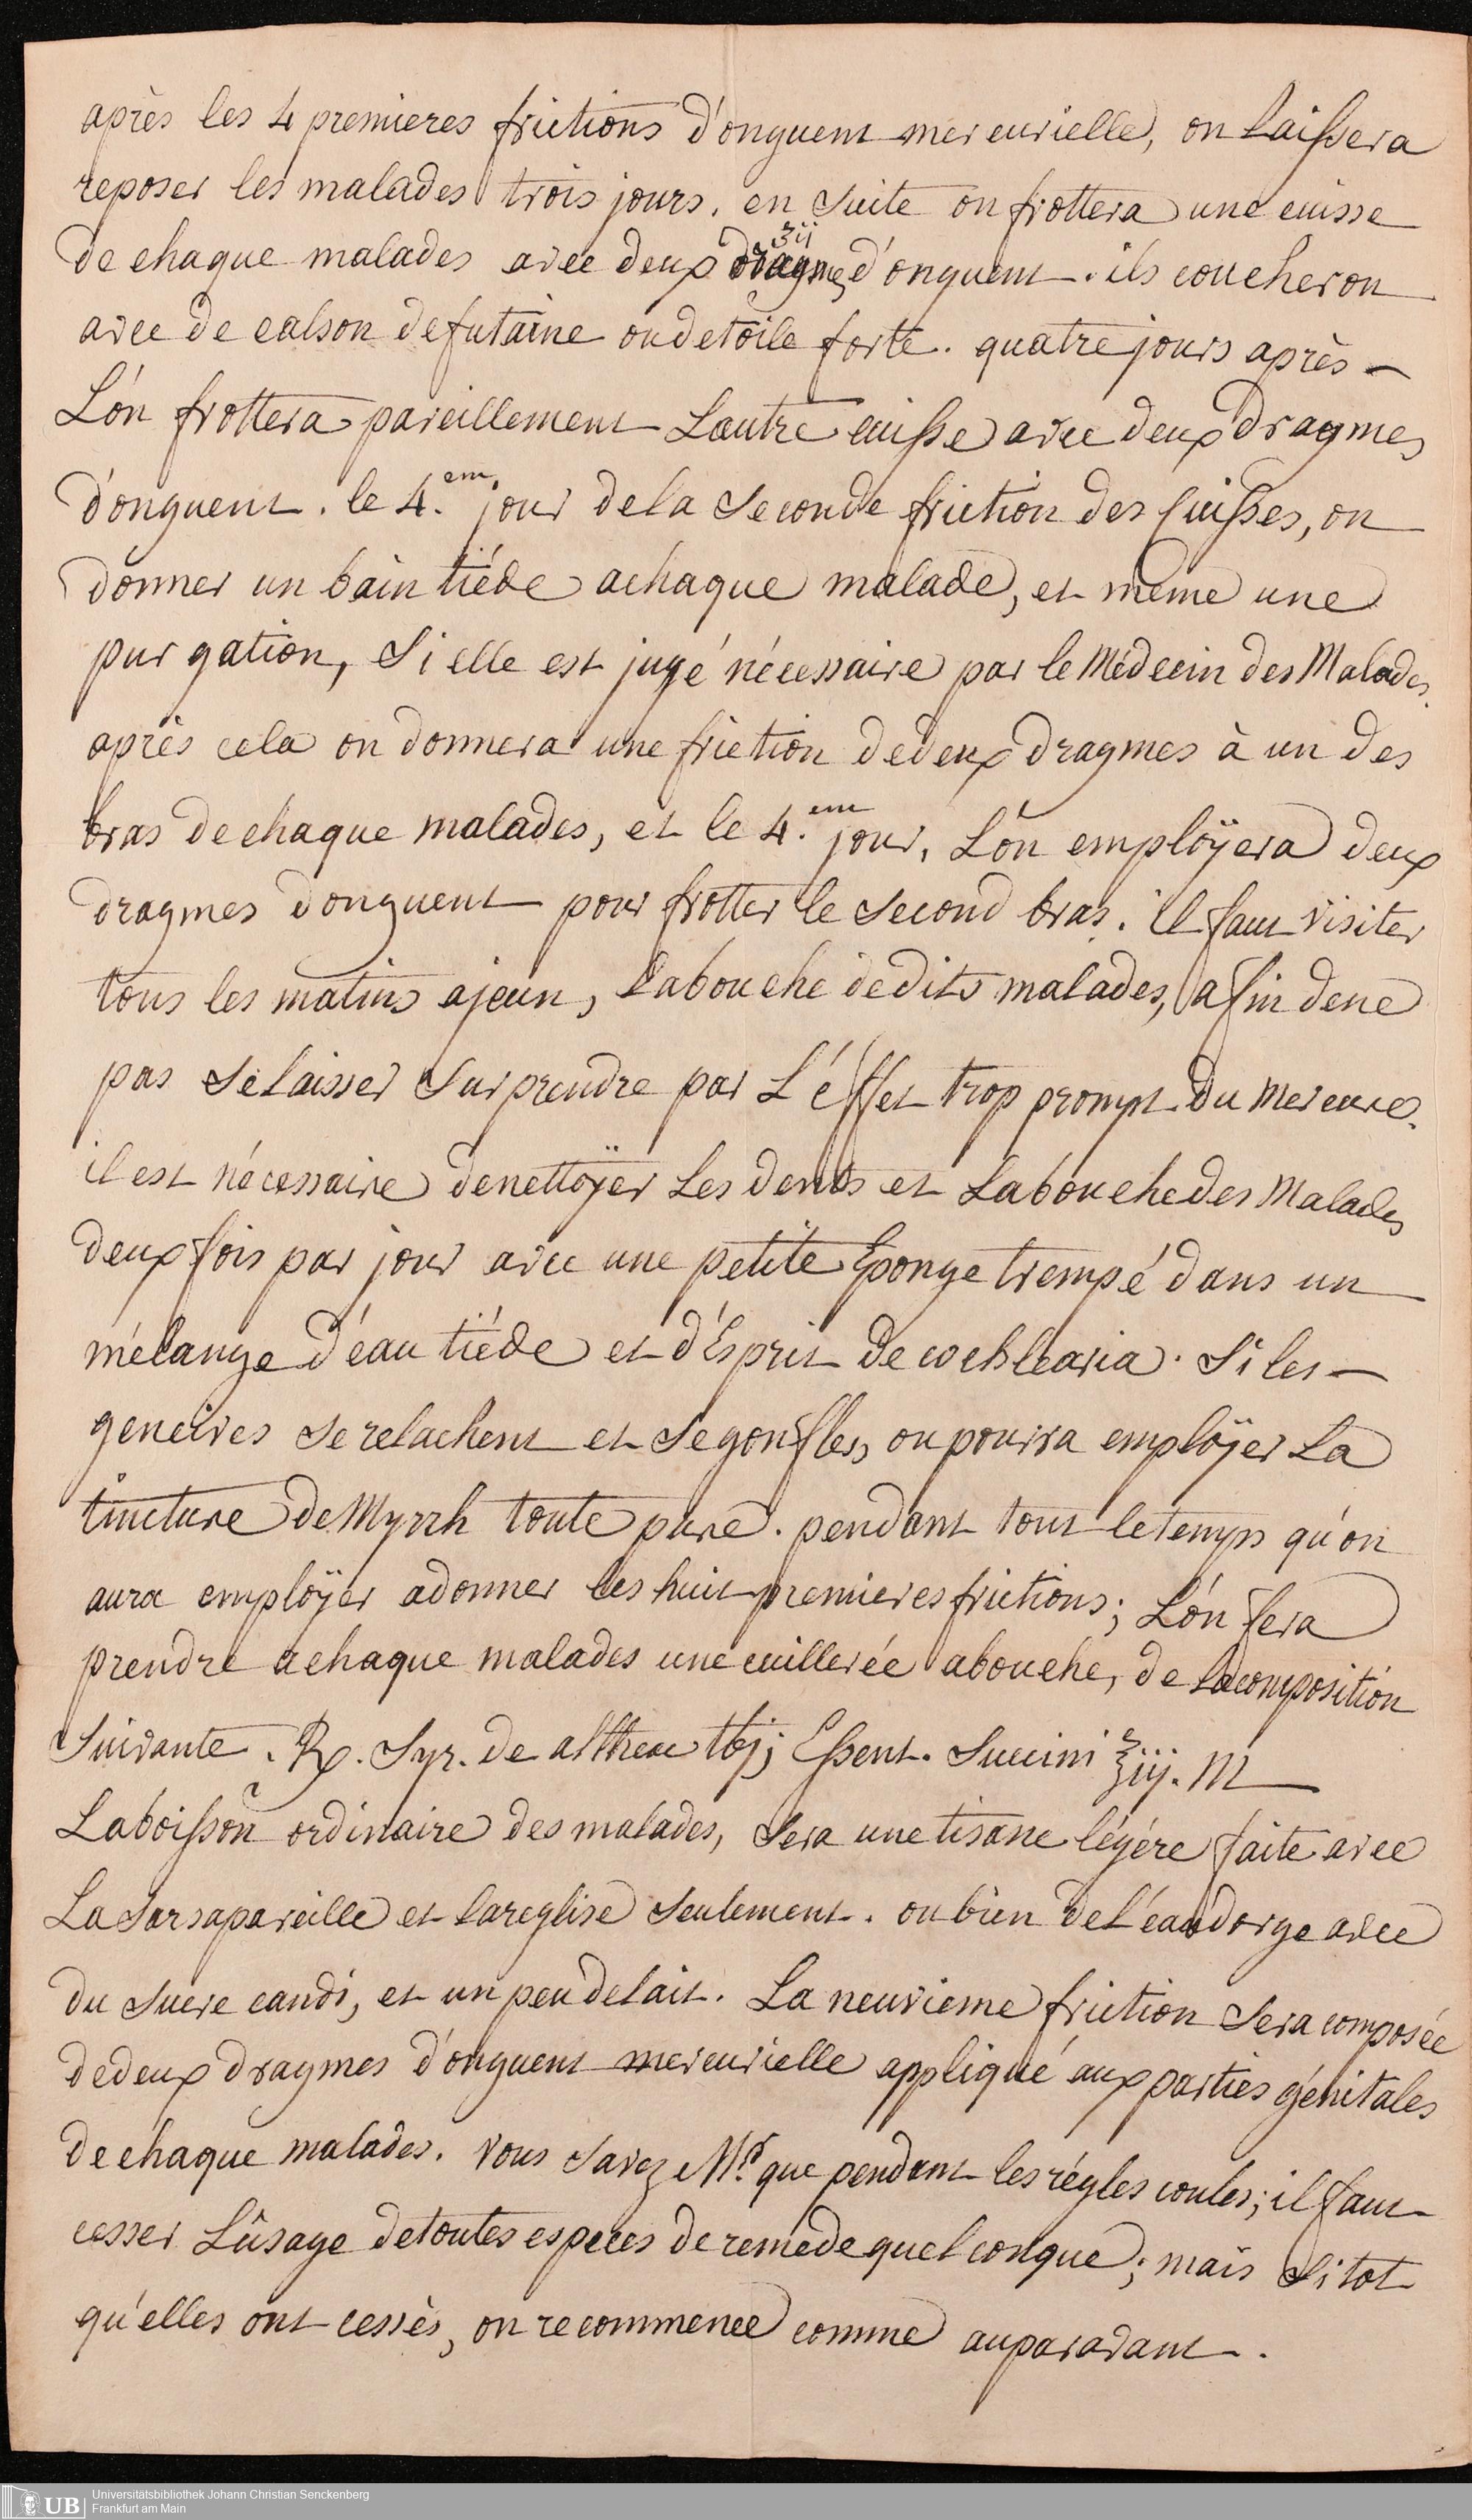 après les 4 premieres frictions d'onguent mercurielle, on laissera
reposer les malades trois jours. en suite on frottera une cuisse
ʒij
de chaque malades avec deux dragmes d'onguent. ils coucheron
avec de calson de futaine ou de toile forte. quatre jours après —
L'on frottera pareillement Lautre cuisse avec deux dragmes
d'onguent. le 4.em jour de la seconde friction des cuisses, on
donner un bain tiéde a chaque malade, et meme une
purgation, si elle est jugé nécessaire par le Médecin des Malades.
après cela on donnera une friction de deux dragmes à un des
bras de chaque malades, et le 4.em jour, L'on emploÿera deux
dragmes donguent pour frotter le second bras. il faut visiter
tous les matins ajeun, la bouche de dits malades, afin de ne
pas se laisser surprendre par L'éffet trop prompt du mercure.
il est nécessaire de nettoÿer Les dents et La bouche des Malades
deux fois par jour avec une petite Eponge trempé dans un
mélange d'éau tiéde et d'Esprit de cochlearia. Si les —
gencives se relachent et se gonfles, on pourra emploÿer La
tincture de Myrrh toute pure. pendant tout le temps qu'on
aura emploÿer a donner les huit premieres frictions; L'on fera
prendre a chaque malades une cuillerée a bouche, de La composition
suivante. Rx. Syr. de altheae ℔j; Essent. Succini ʒiij. M
La boisson ordinaire des malades, sera une tisane légére faite avec
La Sarsapareille et la reglise seulement. ou bien de l'éau d'orge avec
du sucre candi, et un peu de lait. La neuvieme friction sera composée
de deux dragmes d'onguent mercurielle appliqué aux parties génitales
de chaque malades. vous savez Mr. que pendant les régles coules; il faut
cesser L'usage de toutes especes de remede quelconque; mais sitot
qu'elles ont cessès, on recommence comme auparavant.
UB Universitätsbibliothek Johann Christian Senckenberg
Frankfurt am Main